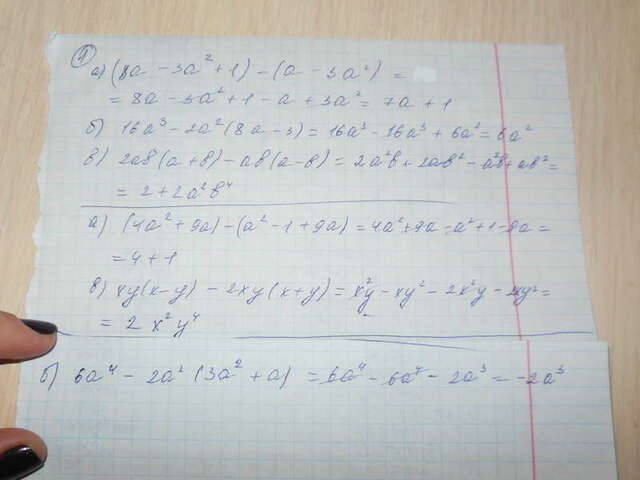 1
а) (8a - 3a² + 1) - (a - 3a²) =
= 8a - 3a² + 1 - a + 3a² = 7a + 1
б) 16a³ - 2a²(8a - 3) = 16a³ - 16a³ + 6a² = 6a²
в) 2ab(a + b) - ab(a - b) = 2a²b + 2ab² - a²b + ab² =
= 2 + 2a²b⁴
а) (4a² + 9a) - (a² - 1 + 9a) = 4a² + 9a - a² + 1 - 9a =
= 4 + 1
в) xy(x - y) - 2xy(x + y) = x²y - xy² - 2x²y - 2xy² =
= 2x²y⁴
б) 6a⁴ - 2a²(3a² + a) = 6a⁴ - 6a⁴ - 2a³ = -2a³